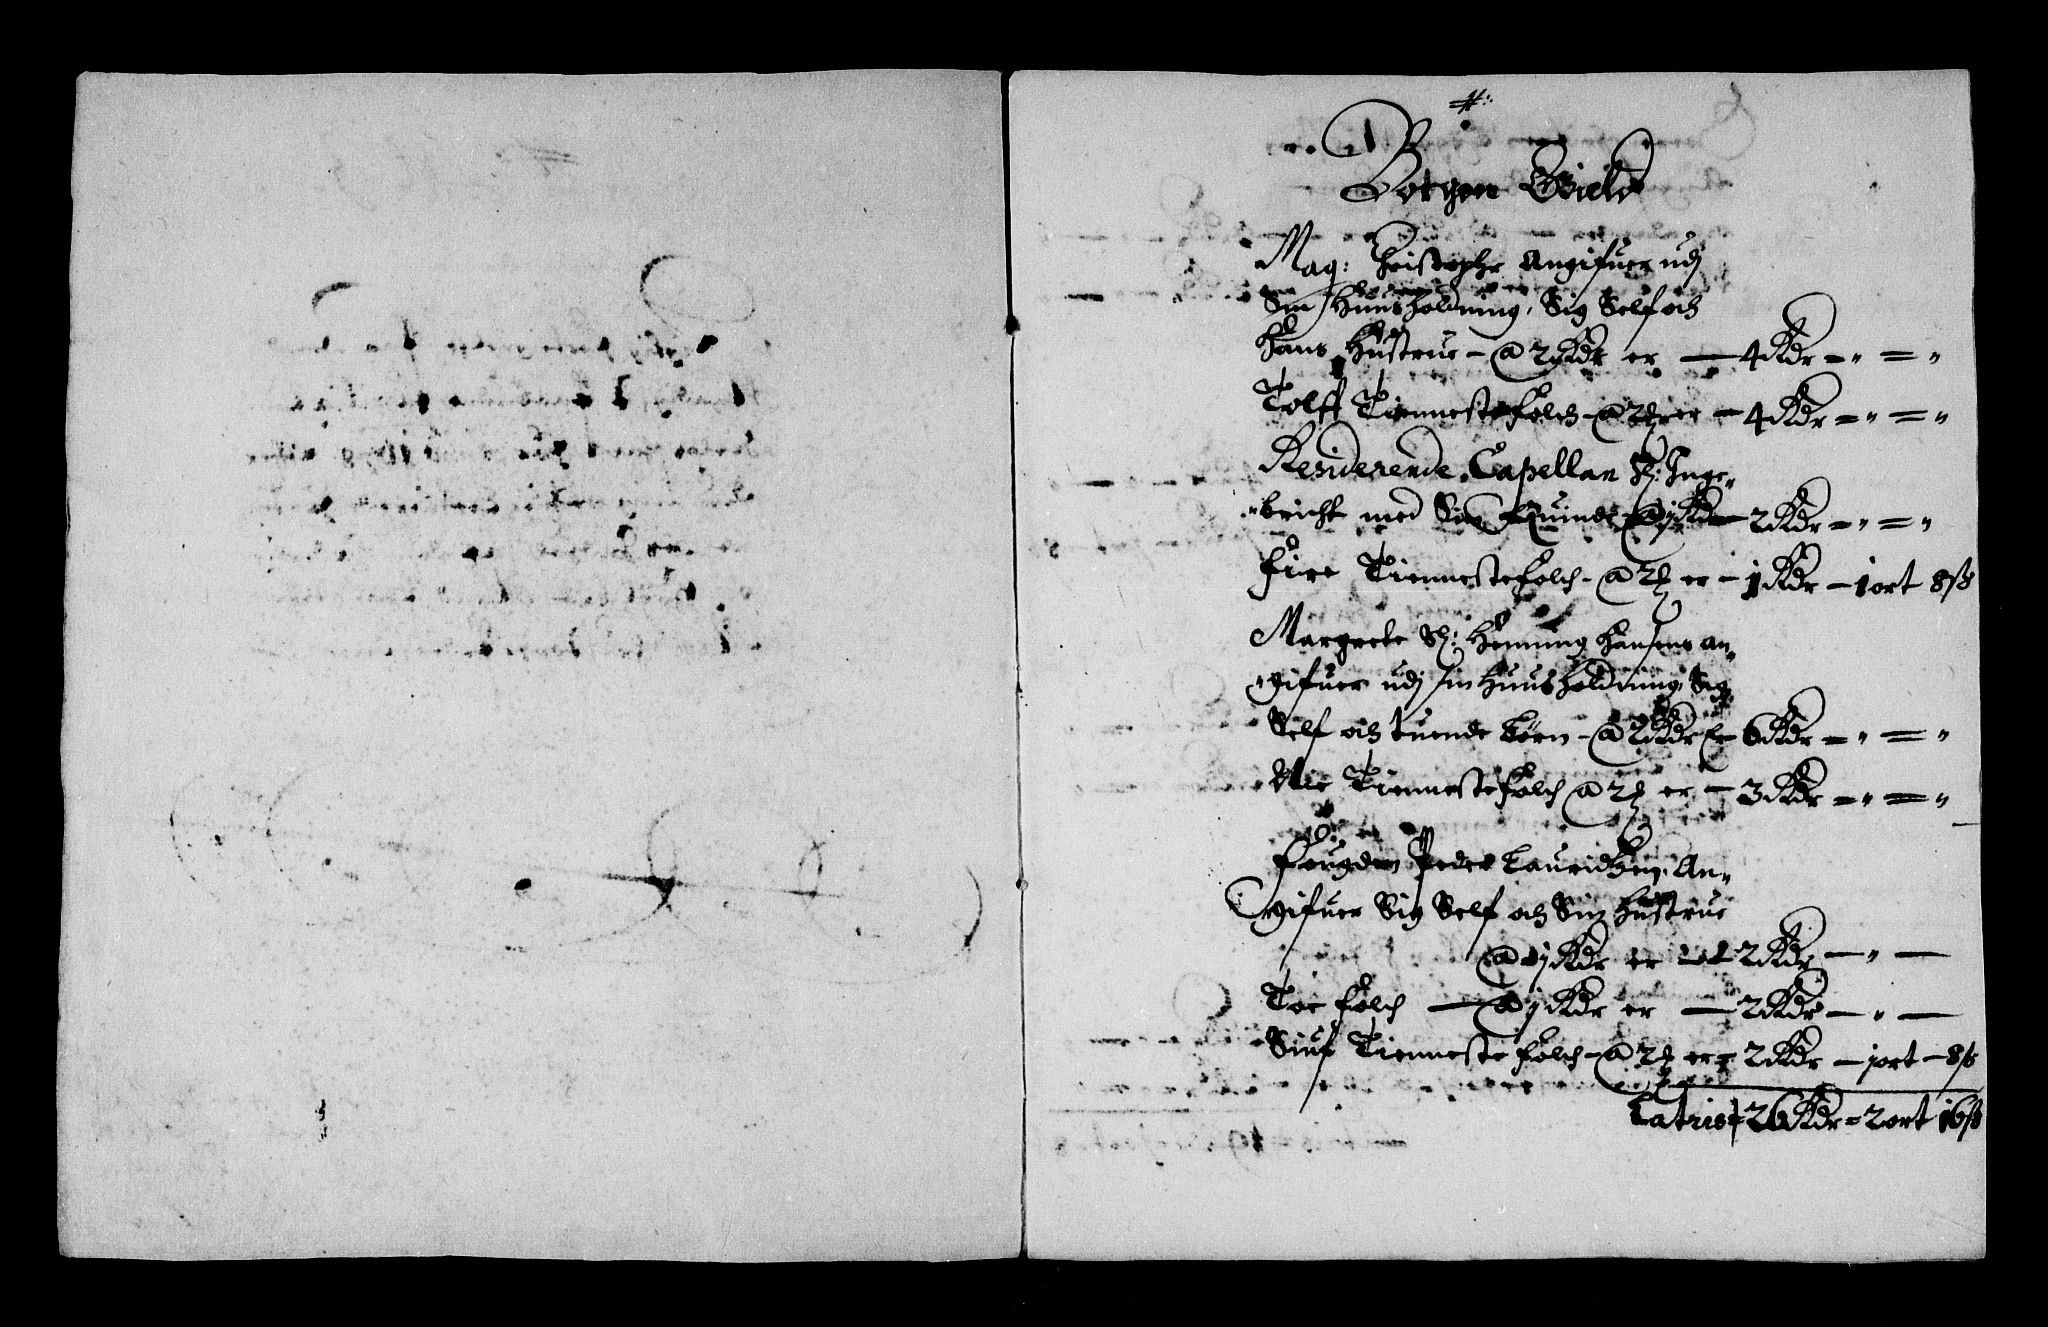 #:
Borgen Gield
Mag: Christopher Angifuer udj
Sin Huusholdning, Sig Self och
Hans Hustrue - @ 2 Rdr er — 4 Rdr - " = "
Tolff Tiennestefolch - @ 2 er — 4 Rdr = " = "
Residerende Capellan H: Inge-
bricht med Sin Quinde @ j Rdr 2 Rdr = " = "
Fire Tiennestefolch - @ 2 er - 1 Rdr - 1 ort 8 ß
Margrete Sl: Henning Hansens an-
gifuer udj sin Huusholdning, Sig
Self och tuende Børn - @ 2 Rdr er 6 Rdr - " = "
Nie Tiennestefolch @ 2 er - 3 Rdr = " = "
Fougden Peder Lauridtzen An-
gifuer Sig Self och Sin Hustrue
@ j Rdr er 2 Rdr — " —
Toe folch — @ j Rdr er — 2 Rdr — " —
Siuf Tienneste folch - @ 2 er = 2 Rdr — j ort - 8 ß
Latris 26 Rdr = 2 ort 16 ß